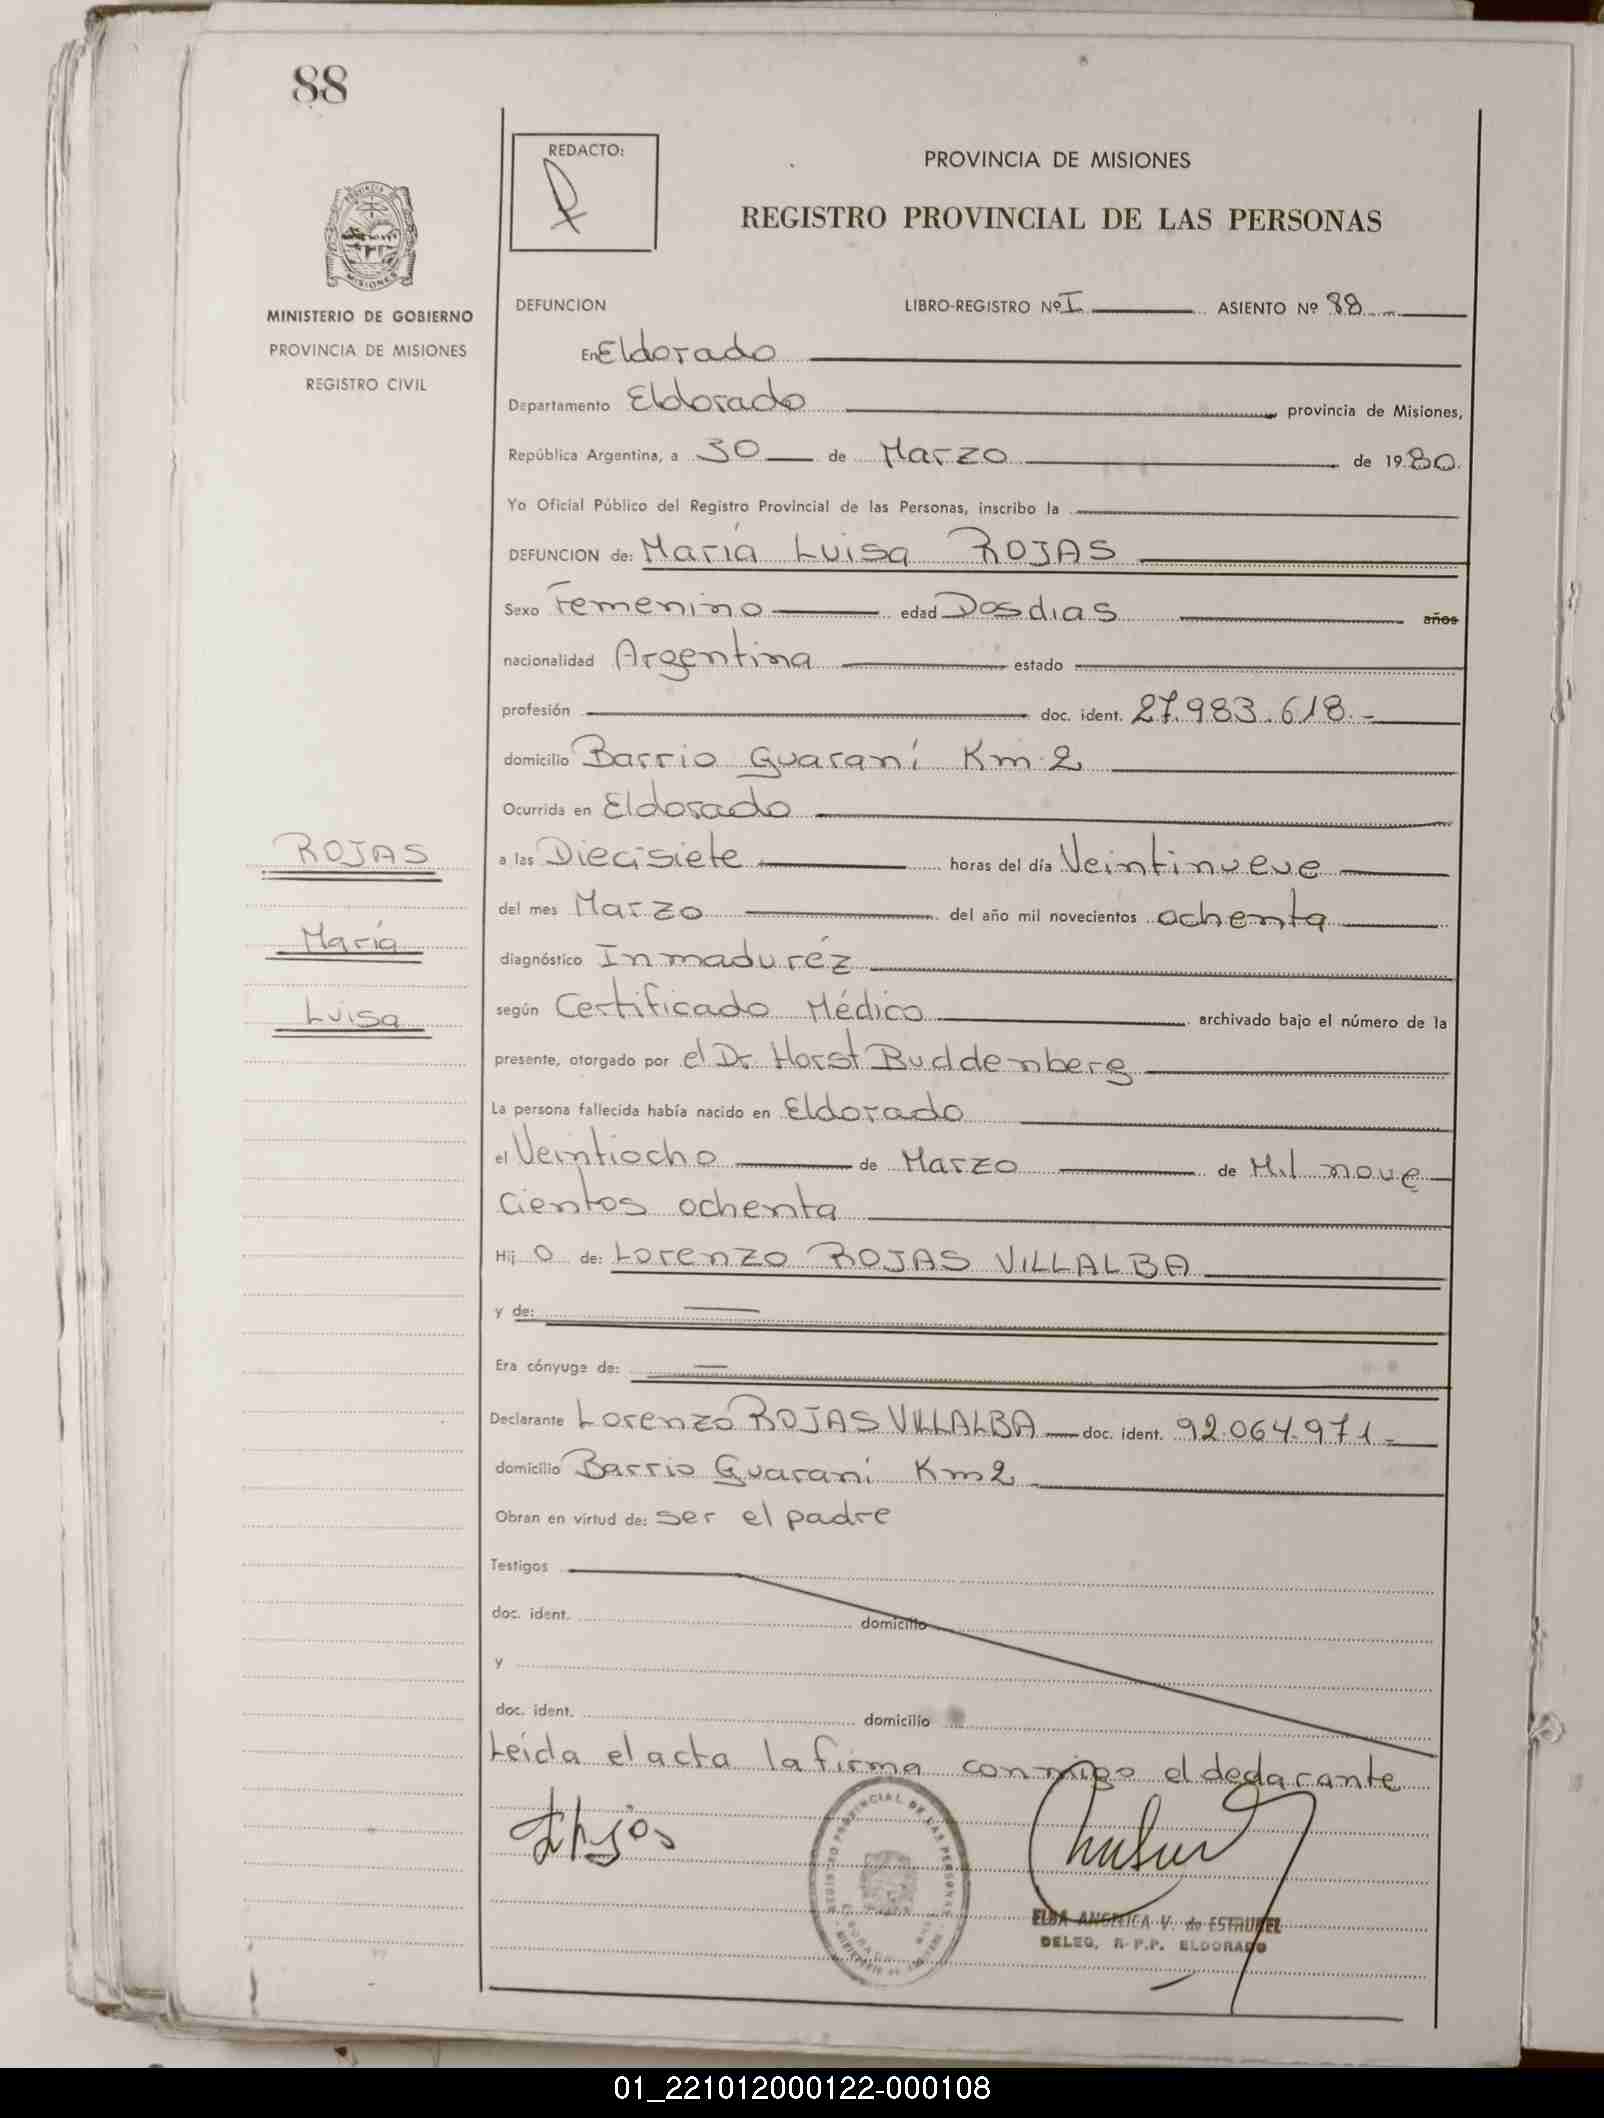 88
REDACTO:
PROVINCIA DE MISIONES
REGISTRO PROVINCIAL DE LAS PERSONAS
MISIONES
MINISTERIO DE GOBIERNO
PROVINCIA DE MISIONES
REGISTRO CIVIL
DEFUNCION LIBRO-REGISTRO Nº I ASIENTO Nº 88
En Eldorado
Departamento Eldorado provincia de Misiones,
República Argentina, a 30 de Marzo de 1980.
Yo Oficial Público del Registro Provincial de las Personas, inscribo la
DEFUNCION de: María Luisa ROJAS
Sexo Femenino edad Dos dias años
nacionalidad Argentina estado
profesión doc. ident. 27.983.618.-
domicilio Barrio Guaraní Km 2
Ocurrida en Eldorado
a las Diecisiete horas del día Veintinueve
del mes Marzo del año mil novecientos ochenta
diagnóstico Inmaduréz
según Certificado Médico archivado bajo el número de la
presente, otorgado por el Dr. Horst Buddenberg
La persona fallecida había nacido en Eldorado
el Veintiocho de Marzo de Mil nove
cientos ochenta
Hij o de: Lorenzo ROJAS VILLALBA
y de:
Era cónyuge de:
Declarante Lorenzo ROJAS VILLALBA doc. ident. 92.064.971.-
domicilio Barrio Guaraní Km 2
Obran en virtud de: ser el padre
Testigos
doc. ident. domicilio
y
doc. ident. domicilio
Leída el acta la firma conmigo el declarante
ROJAS
María
Luisa
REGISTRO PROVINCIAL DE LAS PERSONAS
ELBA ANGELICA V. de ESTRUBEL
DELEG. R.P.P. ELDORADO
01_221012000122-000108